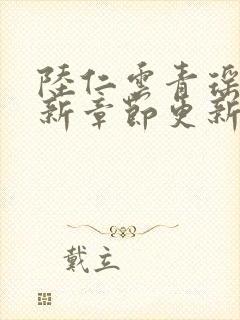 陸仁雲青瑤
新章節更新
戴立